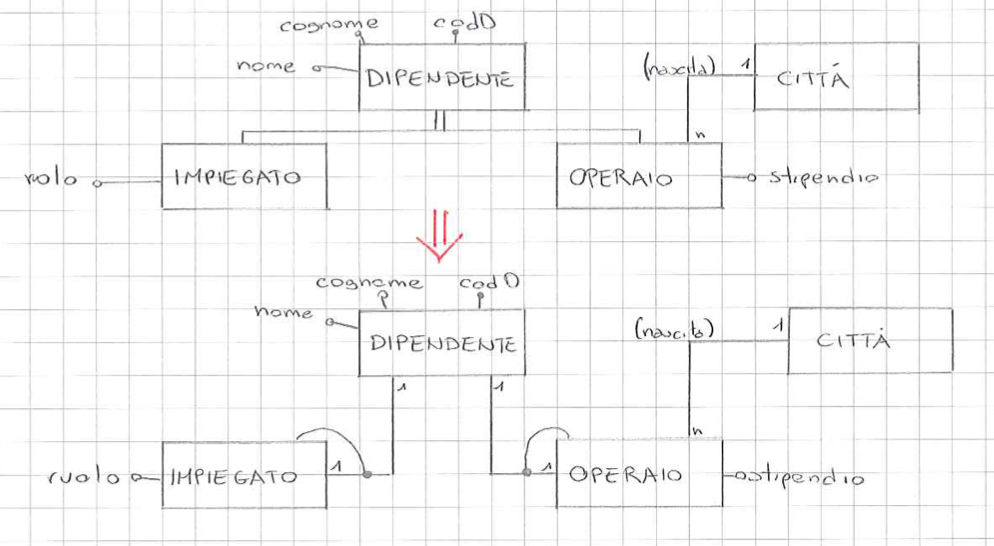 cognome codD
nome DIPENDENTE (nascita) 1 CITTÀ
n
ruolo IMPIEGATO OPERAIO stipendio
cognome codD
nome DIPENDENTE (nascita) 1 CITTÀ
1 1
n
ruolo IMPIEGATO 1 1 OPERAIO stipendio